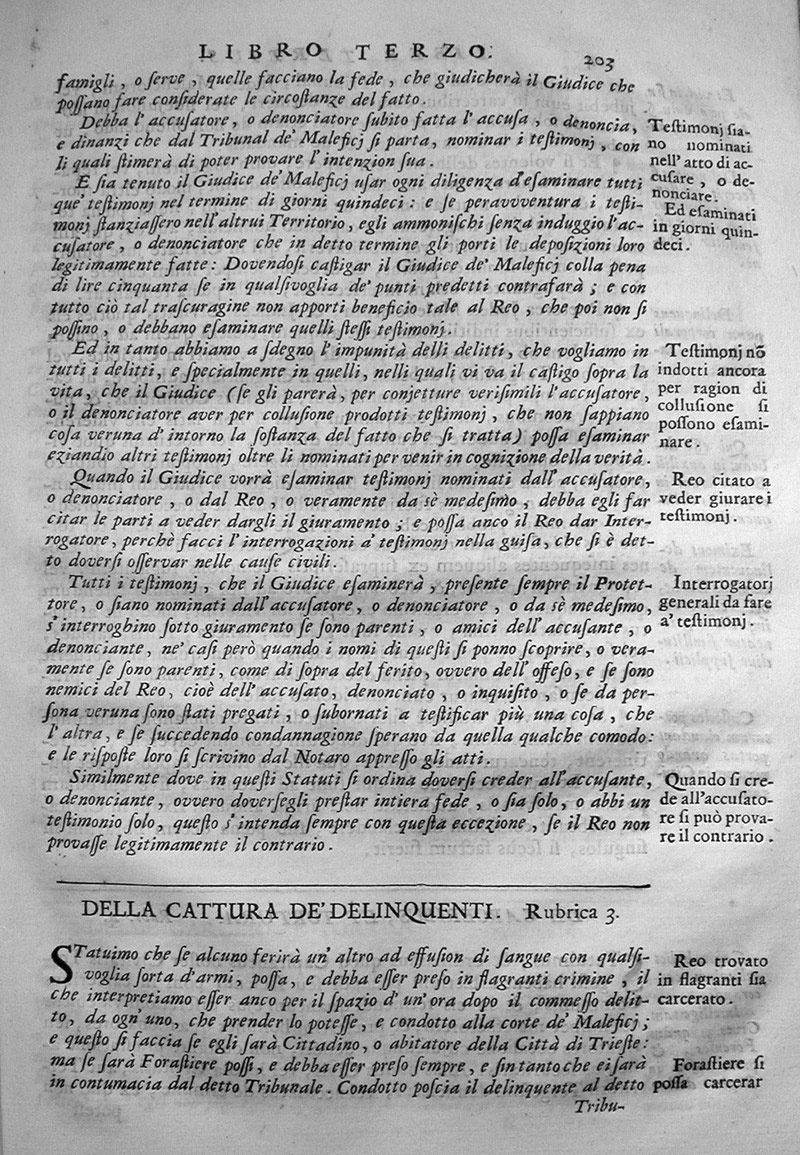 LIBRO TERZO.
203
famigli, o ſerve, quelle facciano la fede, che giudicherà il Giudice che
poſſano fare conſiderate le circoſtanze del fatto.
Debba l' accuſatore, o denonciatore ſubito fatta l' accuſa, o denoncia,
e dinanzi che dal Tribunal de' Maleficj ſi parta, nominar i teſtimonj, con
li quali ſtimerà di poter provare l' intenzion ſua.
E ſia tenuto il Giudice de' Maleficj uſar ogni diligenza d'eſaminare tutti
que' teſtimonj nel termine di giorni quindeci: e ſe peravventura i teſti-
monj ſtanziaſſero nell'altrui Territorio, egli ammoniſchi ſenza induggio l'ac-
cuſatore, o denonciatore che in detto termine gli porti le depoſizioni loro
legitimamente fatte: Dovendoſi caſtigar il Giudice de' Maleficj colla pena
di lire cinquanta ſe in qualſivoglia de' punti predetti contrafarà; e con
tutto ciò tal traſcuragine non apporti beneficio tale al Reo, che poi non ſi
poſſino, o debbano eſaminare quelli ſteſſi teſtimonj.
Ed in tanto abbiamo a ſdegno l' impunità delli delitti, che vogliamo in
tutti i delitti, e ſpecialmente in quelli, nelli quali vi va il caſtigo ſopra la
vita, che il Giudice (ſe gli parerà, per conjetture veriſimili l'accuſatore,
o il denonciatore aver per colluſione prodotti teſtimonj, che non ſappiano
coſa veruna d' intorno la ſoſtanza del fatto che ſi tratta) poſſa eſaminar
eziandio altri teſtimonj oltre li nominati per venir in cognizione della verità.
Quando il Giudice vorrà eſaminar teſtimonj nominati dall' accuſatore,
o denonciatore, o dal Reo, o veramente da sè medeſimo, debba egli far
citar le parti a veder dargli il giuramento; e poſſa anco il Reo dar Inter-
rogatore, perchè facci l' interrogazioni a' teſtimonj nella guiſa, che ſi è det-
to doverſi oſſervar nelle cauſe civili.
Tutti i teſtimonj, che il Giudice eſaminerà, preſente ſempre il Protet-
tore, o ſiano nominati dall' accuſatore, o denonciatore, o da sè medeſimo,
s' interroghino ſotto giuramento ſe ſono parenti, o amici dell' accuſante, o
denonciante, ne' caſi però quando i nomi di queſti ſi ponno ſcoprire, o vera-
mente ſe ſono parenti, come di ſopra del ferito, ovvero dell' offeſo, e ſe ſono
nemici del Reo, cioè dell' accuſato, denonciato, o inquiſito, o ſe da per-
ſona veruna ſono ſtati pregati, o ſubornati a teſtificar più una coſa, che
l' altra, e ſe ſuccedendo condannagione ſperano da quella qualche comodo:
e le riſpoſte loro ſi ſcrivino dal Notaro appreſſo gli atti.
Similmente dove in queſti Statuti ſi ordina doverſi creder all'accuſante,
o denonciante, ovvero doverſegli preſtar intiera fede, o ſia ſolo, o abbi un
teſtimonio ſolo, queſto s' intenda ſempre con queſta eccezione, ſe il Reo non
provaſſe legitimamente il contrario.
Teſtimonj ſia-
no nominati
nell' atto di ac-
cuſare, o de-
nonciare.
Ed eſaminati
in giorni quin-
deci.
Teſtimonj nõ
indotti ancora
per ragion di
colluſione ſi
poſſono eſami-
nare.
Reo citato a
veder giurare i
teſtimonj.
Interrogatorj
generali da fare
a' teſtimonj.
Quando ſi cre-
de all'accuſato-
re ſi può prova-
re il contrario.
DELLA CATTURA DE' DELINQUENTI. Rubrica 3.
STatuimo che ſe alcuno ferirà un' altro ad effuſion di ſangue con qualſi-
voglia ſorta d'armi, poſſa, e debba eſſer preſo in flagranti crimine, il
che interpretiamo eſſer anco per il ſpazio d' un' ora dopo il commeſſo delit-
to, da ogn' uno, che prender lo poteſſe, e condotto alla corte de' Maleficj;
e queſto ſi faccia ſe egli ſarà Cittadino, o abitatore della Città di Trieſte:
ma ſe ſarà Foraſtiere poſſi, e debba eſſer preſo ſempre, e ſin tanto che ei ſarà
in contumacia dal detto Tribunale. Condotto poſcia il delinquente al detto
Tribu-
Reo trovato
in flagranti ſia
carcerato.
Foraſtiere ſi
poſſa carcerar